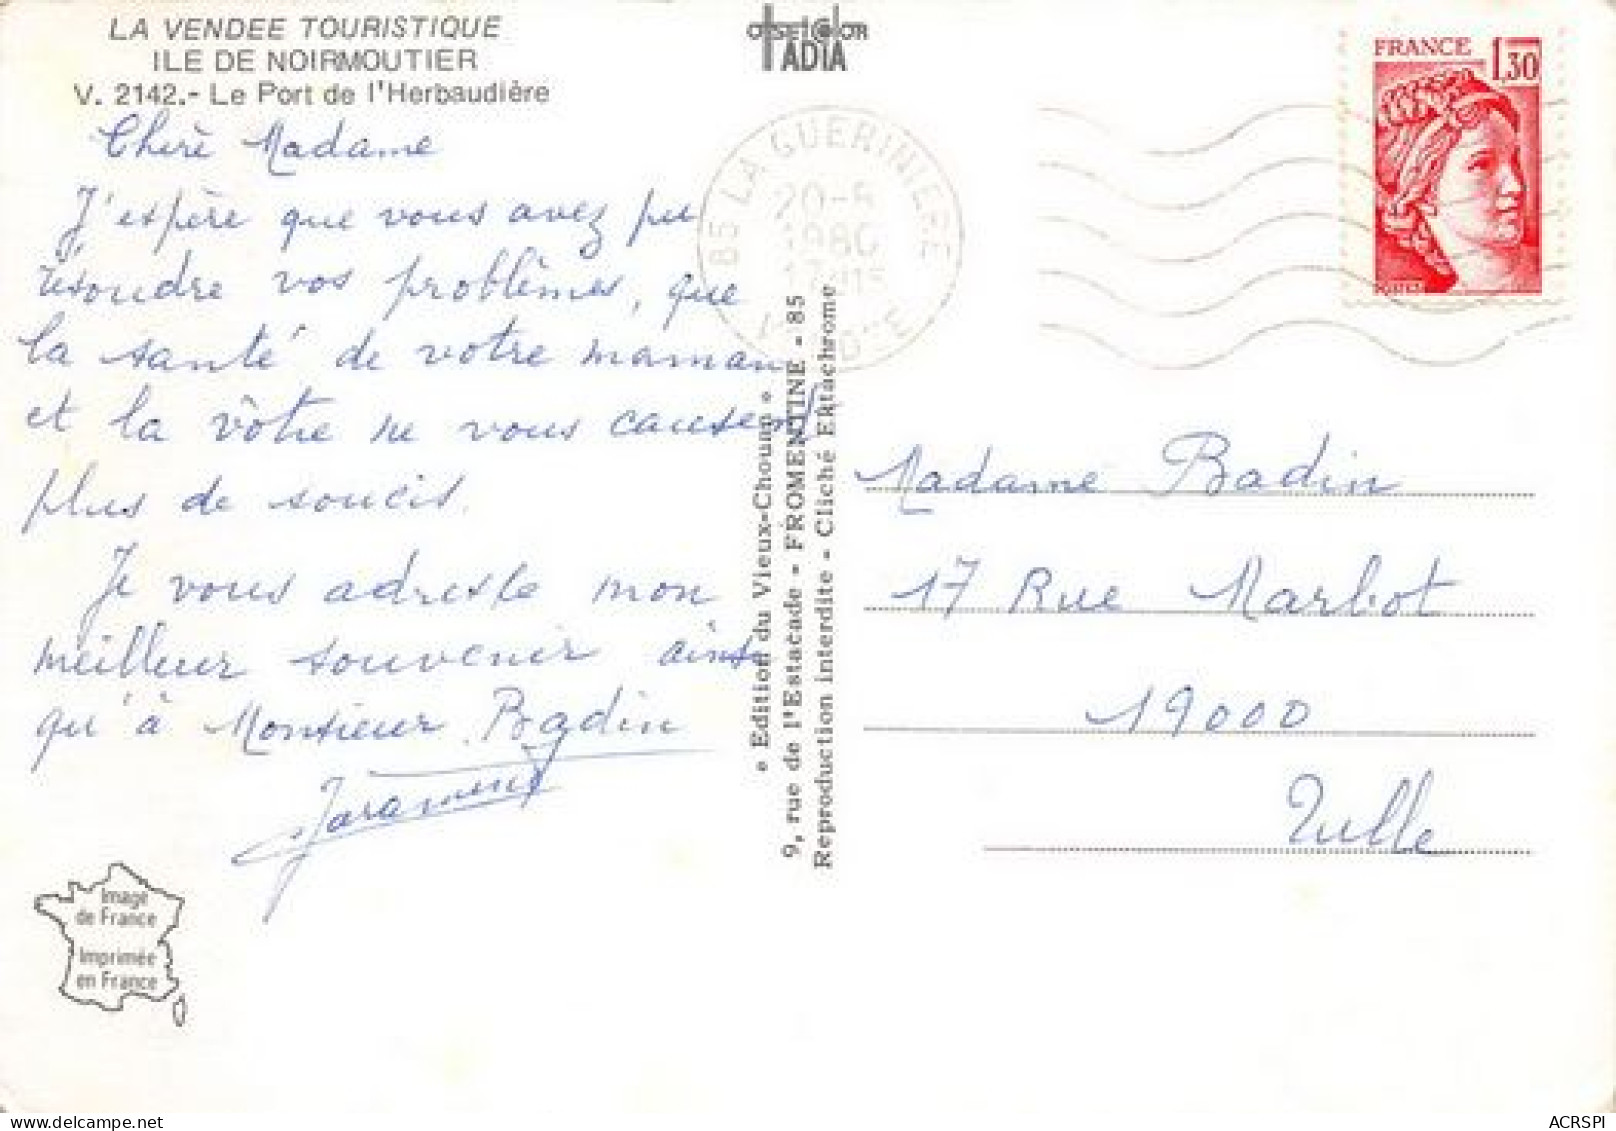 LA VENDEE TOURISTIQUE
ILE DE NOIRMOUTIER
V. 2142.- Le Port de l'Herbaudière
Chère Madame
J'espère que vous avez pu
résoudre vos problèmes, que
la santé de votre maman
et la vôtre ne vous causent
plus de soucis.
Je vous adresse mon
meilleur souvenir ainsi
qu'à Monsieur Badin
Image
de France
Imprimée
en France
OFFSETCOLOR
IADIA
« Edition du Vieux-Chouan »
9, rue de l'Estacade - FROMENTINE - 85
Reproduction interdite - Cliché Ektachrome
85 LA GUERINIERE
1980
FRANCE 1,30
Madame Badin
17 Rue Marbot
19000
Tulle
ACRSPI